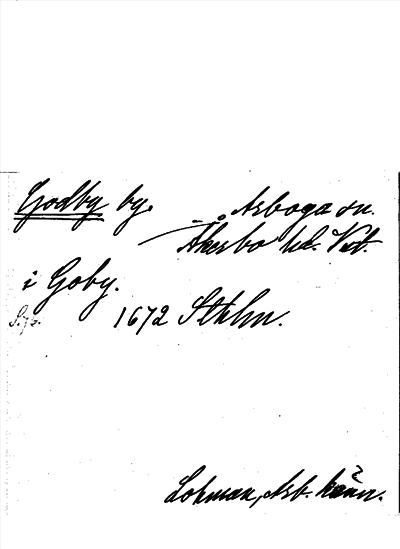 Godby by. Arboga sn.
Åkerbo hd. Vstm.
i Goby.
S. 73. 1672 Sthlm.
Lohman, Arb. känn.